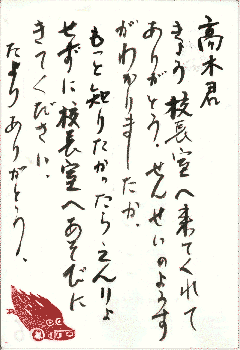 高木君
きょう校長室へ来てくれて
ありがとう。せんせいのようす
がわかりましたか。
もっと知りたかったらえんりょ
せずに校長室へあそびに
きてください。
たよりありがとう。